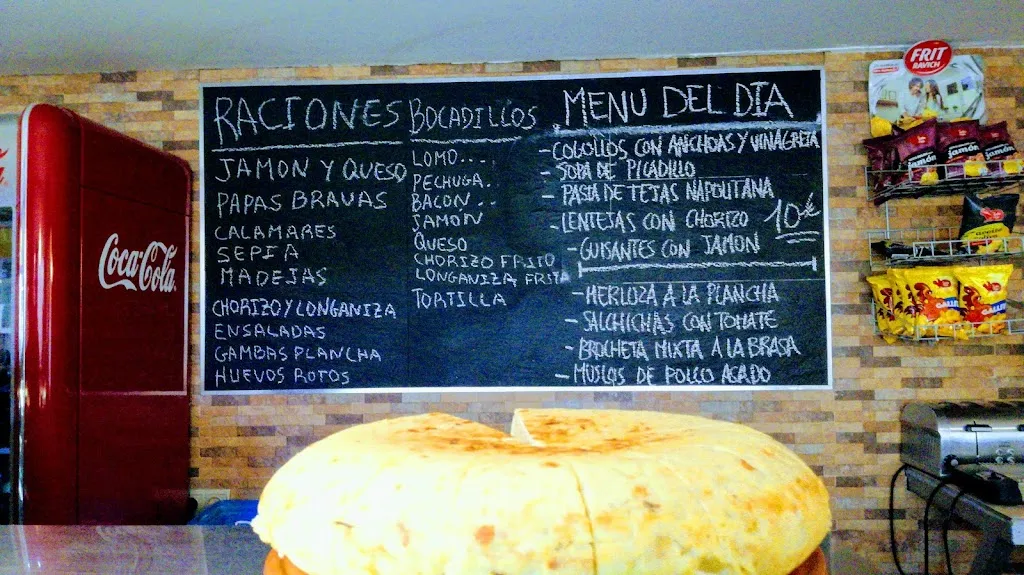 RACIONES
JAMON Y QUESO
PAPAS BRAVAS
CALAMARES
SEPIA
MADEJAS
CHORIZO Y LONGANIZA
ENSALADAS
GAMBAS PLANCHA
HUEVOS ROTOS
BOCADILLOS
LOMO....
PECHUGA.
BACON..
JAMON
QUESO
CHORIZO FRITO
LONGANIZA FRITA
TORTILLA
MENU DEL DIA
- COGOLLOS CON ANCHOAS Y VINAGRETA
- SOPA DE PICADILLO
- PASTA DE TEJAS NAPOLITANA
- LENTEJAS CON CHORIZO
- GUISANTES CON JAMON
10€
- MERLUZA A LA PLANCHA
- SALCHICHAS CON TOMATE
- BROCHETA MIXTA A LA BRASA
- MUSLOS DE POLLO ASADO
Coca-Cola
FRIT
RAVICH
jamón
jamón
jamón